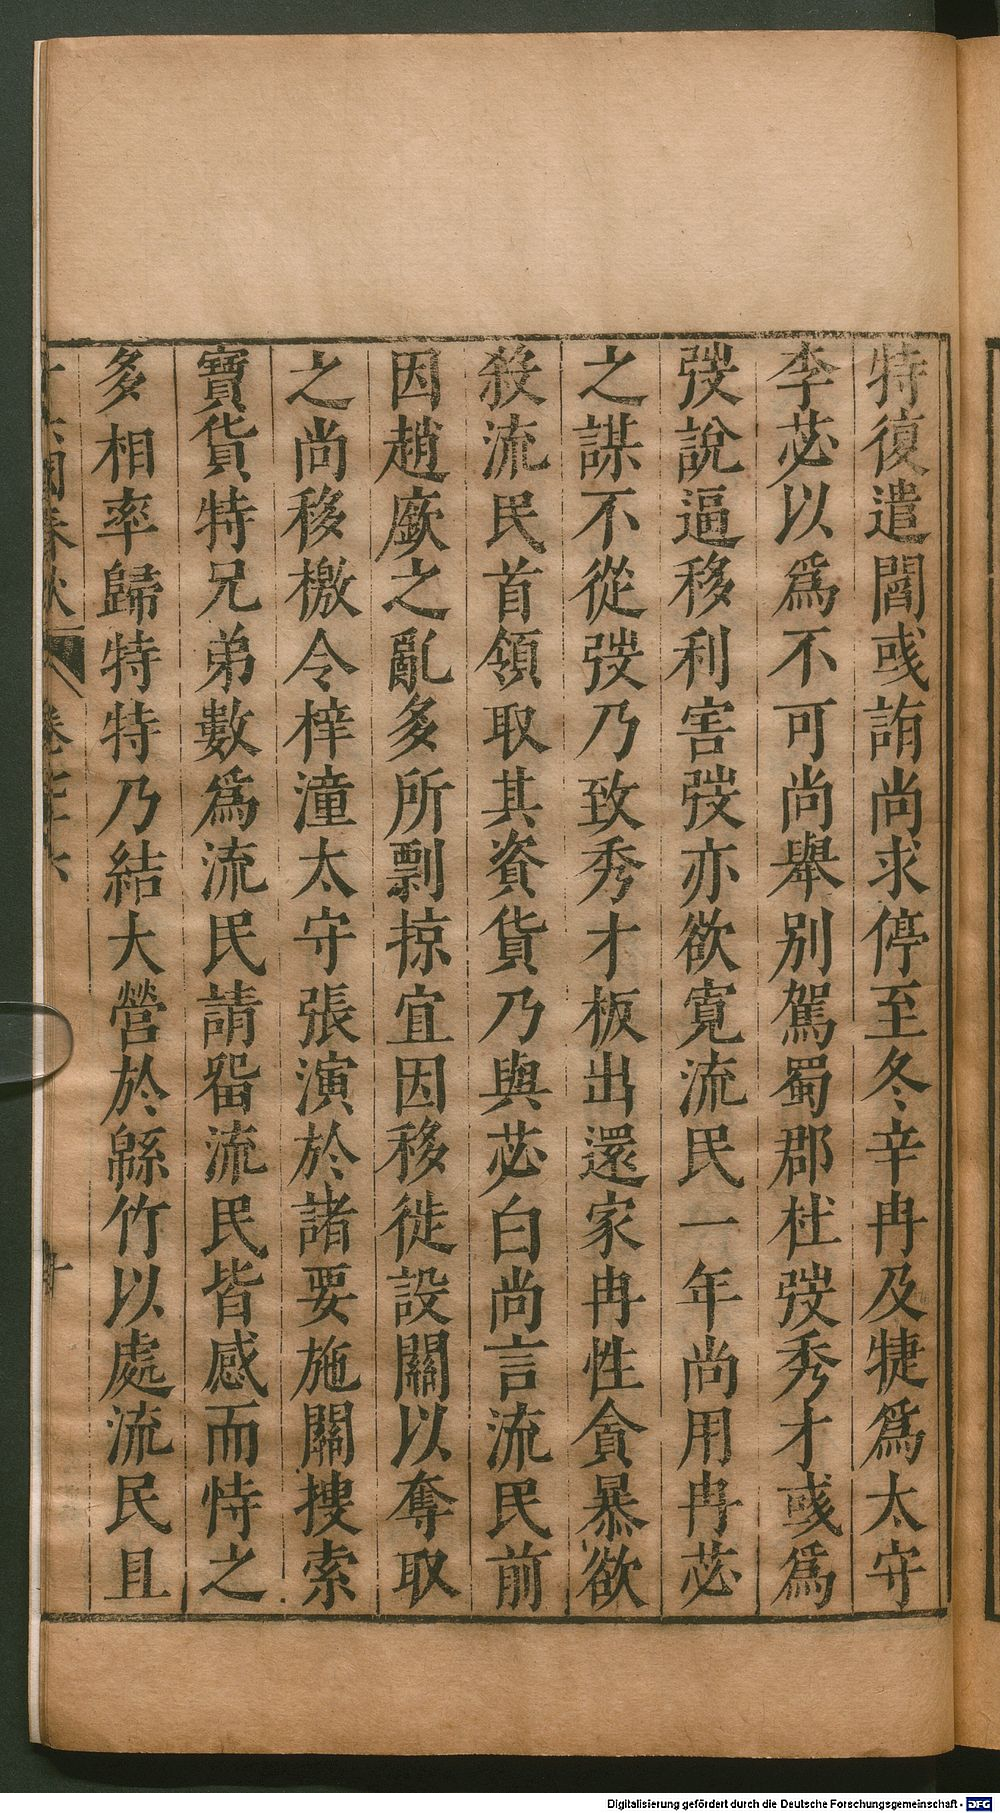 特復遣閻彧詣尚求停至冬辛冉及犍爲太守
李苾以爲不可尚舉別駕蜀郡杜弢秀才彧爲
弢說逼移利害弢亦欲寬流民一年尚用冉苾
之謀不從弢乃致秀才板出還家冉性貪暴欲
殺流民首領取其資貨乃與苾白尚言流民前
因趙廞之亂多所剽掠宜因移徙設關以奪取
之尚移檄令梓潼太守張演於諸要施關搜索
寶貨特兄弟數爲流民請留流民皆感而恃之
多相率歸特特乃結大營於緜竹以處流民且
國春秋 卷七十六 十
Digitalisierung gefördert durch die Deutsche Forschungsgemeinschaft - DFG